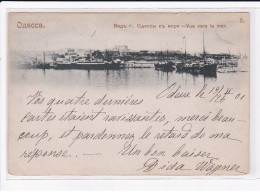 Одесса.
Видъ г. Одессы съ моря – Vue vers la mer.
Odessa le 19/4 01
Vos quatre dernières
cartes étaient ravissantes, merci beau-
coup, et pardonnez le retard de ma
réponse.
Un bon baiser
Dida Wagner